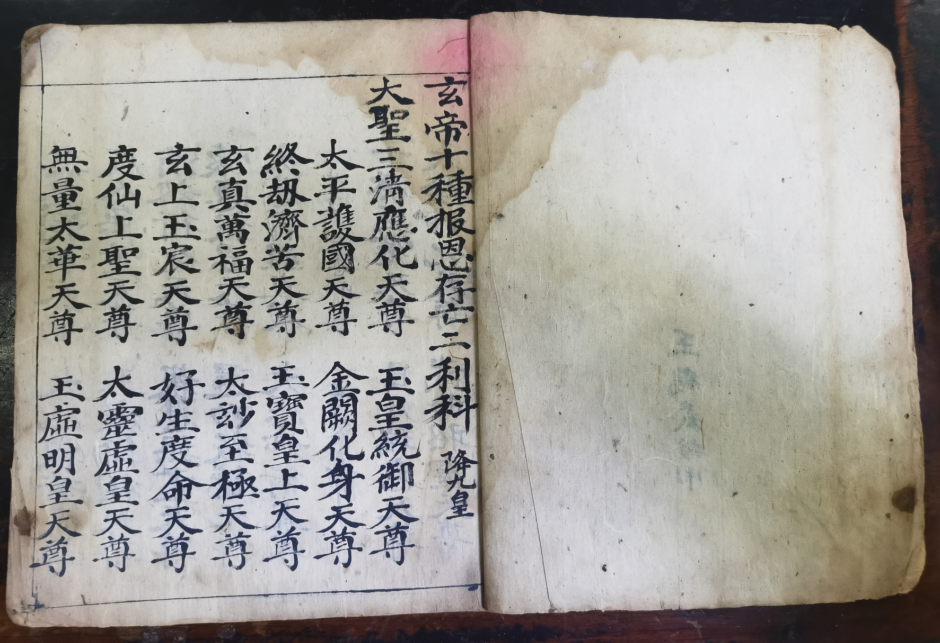 玄帝十種报恩存亡二利科 降九皇
大聖三清應化天尊 玉皇統御天尊
太平護國天尊 金闕化身天尊
終劫濟苦天尊 玉寶皇上天尊
玄真萬福天尊 太玅至極天尊
玄上玉宸天尊 好生度命天尊
度仙上聖天尊 太靈虛皇天尊
無量太華天尊 玉虛明皇天尊